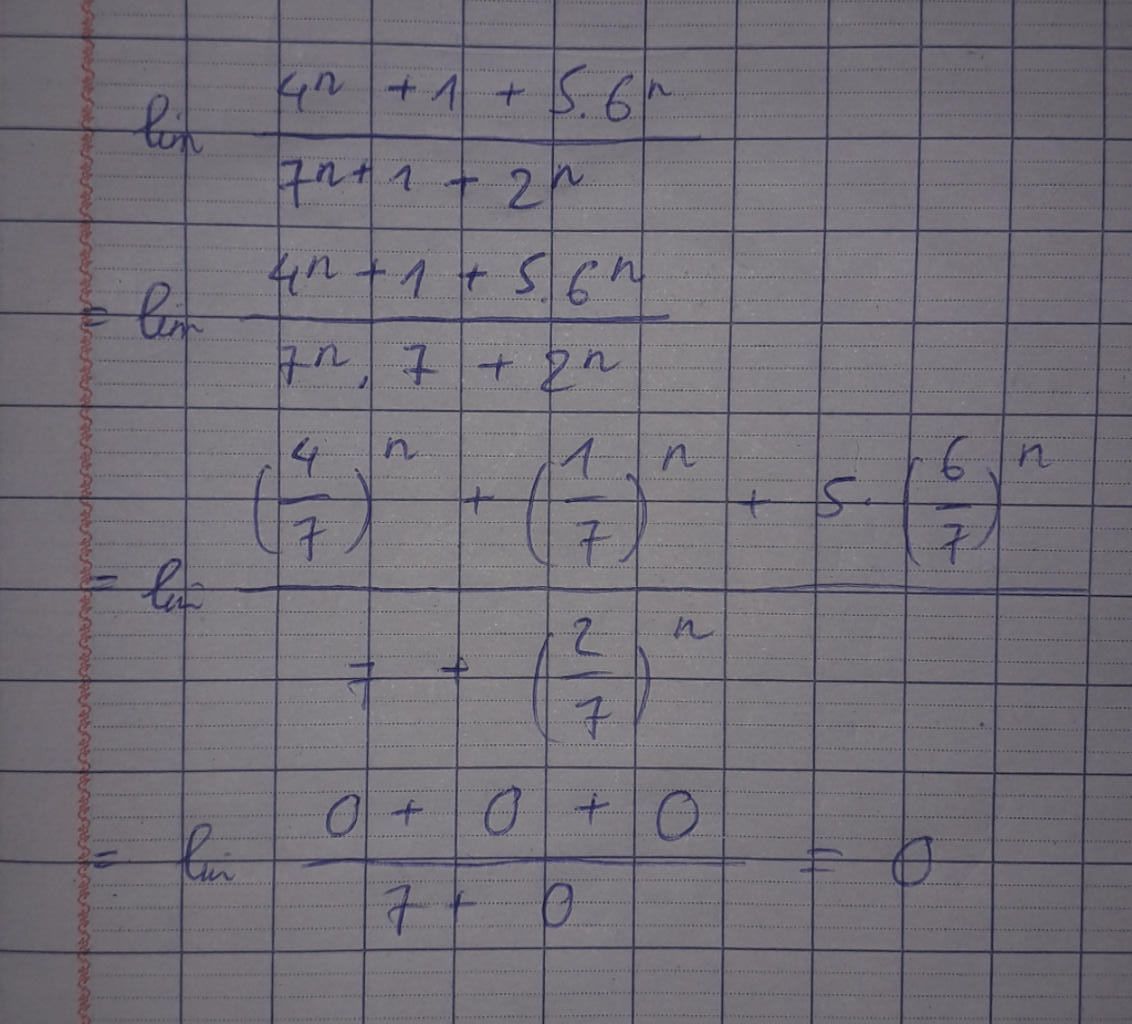 lim (4ⁿ + 1 + 5.6ⁿ) / (7ⁿ⁺¹ + 2ⁿ)
= lim (4ⁿ + 1 + 5.6ⁿ) / (7ⁿ . 7 + 2ⁿ)
= lim ((4/7)ⁿ + (1/7)ⁿ + 5.(6/7)ⁿ) / (7 + (2/7)ⁿ)
= lim (0 + 0 + 0) / (7 + 0) = 0